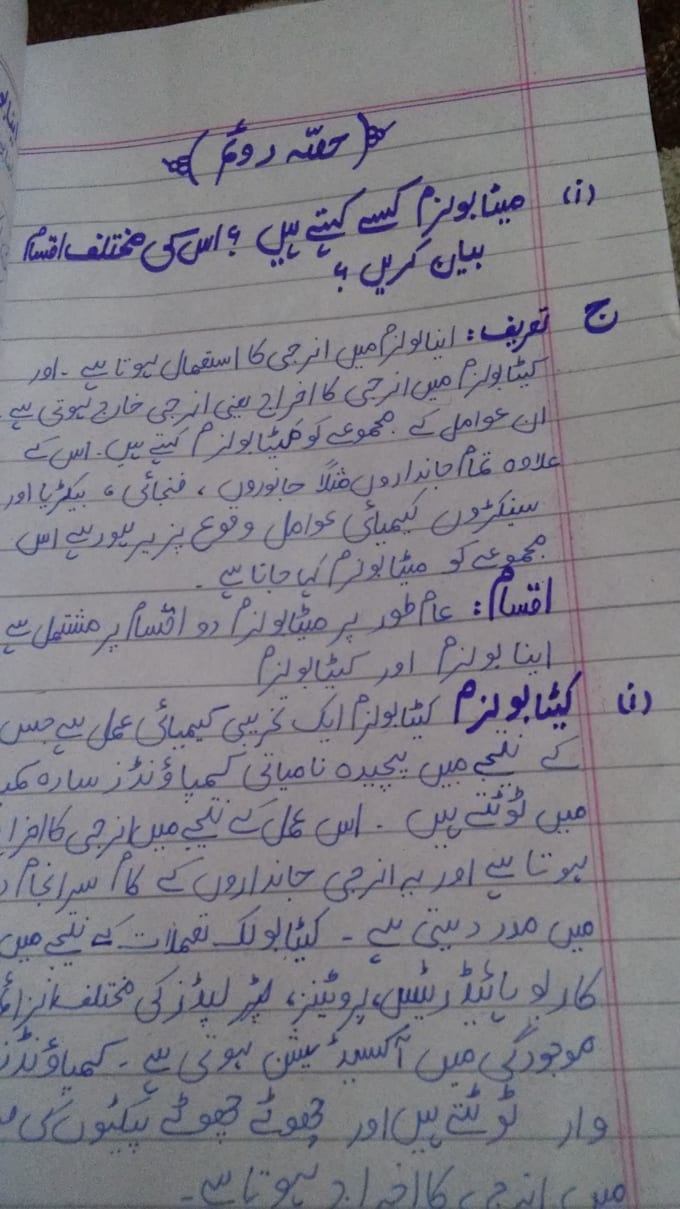 (حصّہ دوئم)
(i) میٹابولزم کسے کہتے ہیں ؟ اس کی مختلف اقسام
بیان کریں ؟
ج تعریف: اینابولزم میں انرجی کا استعمال ہوتا ہے ۔ اور
کیٹابولزم میں انرجی کا اخراج یعنی انرجی خارج ہوتی ہے
ان عوامل کے مجموعے کو میٹابولزم کہتے ہیں۔ اس کے
علاوہ تمام جانداروں مثلاً جانوروں ، فنجائی ، بیکٹریا اور
سینکڑوں کیمیائی عوامل وقوع پزیر ہورہے اس
مجموعے کو میٹابولزم کہا جاتا ہے ۔
اقسام: عام طور پر میٹابولزم دو اقسام پر مشتمل ہے
اینابولزم اور کیٹابولزم
(i) کیٹابولزم کیٹابولزم ایک تخریبی کیمیائی عمل ہے جس
کے نتیجے میں پیچیدہ نامیاتی کمپاؤنڈز سادہ
میں ٹوٹتے ہیں ۔ اس عمل کے نتیجے میں انرجی کا
ہوتا ہے اور یہ انرجی جانداروں کے کام سرانجام
میں مدد دیتی ہے ۔ کیٹابولک تعملات کے نتیجے میں
کاربوہائڈریٹس، پروٹینز، لپڈز کی مختلف
موجودگی میں آکسیڈیشن ہوتی ہے ۔ کمپاؤنڈز
وار ٹوٹتے ہیں اور چھوٹے چھوٹے کی
میں انرجی کا اخراج ہوتا ہے ۔